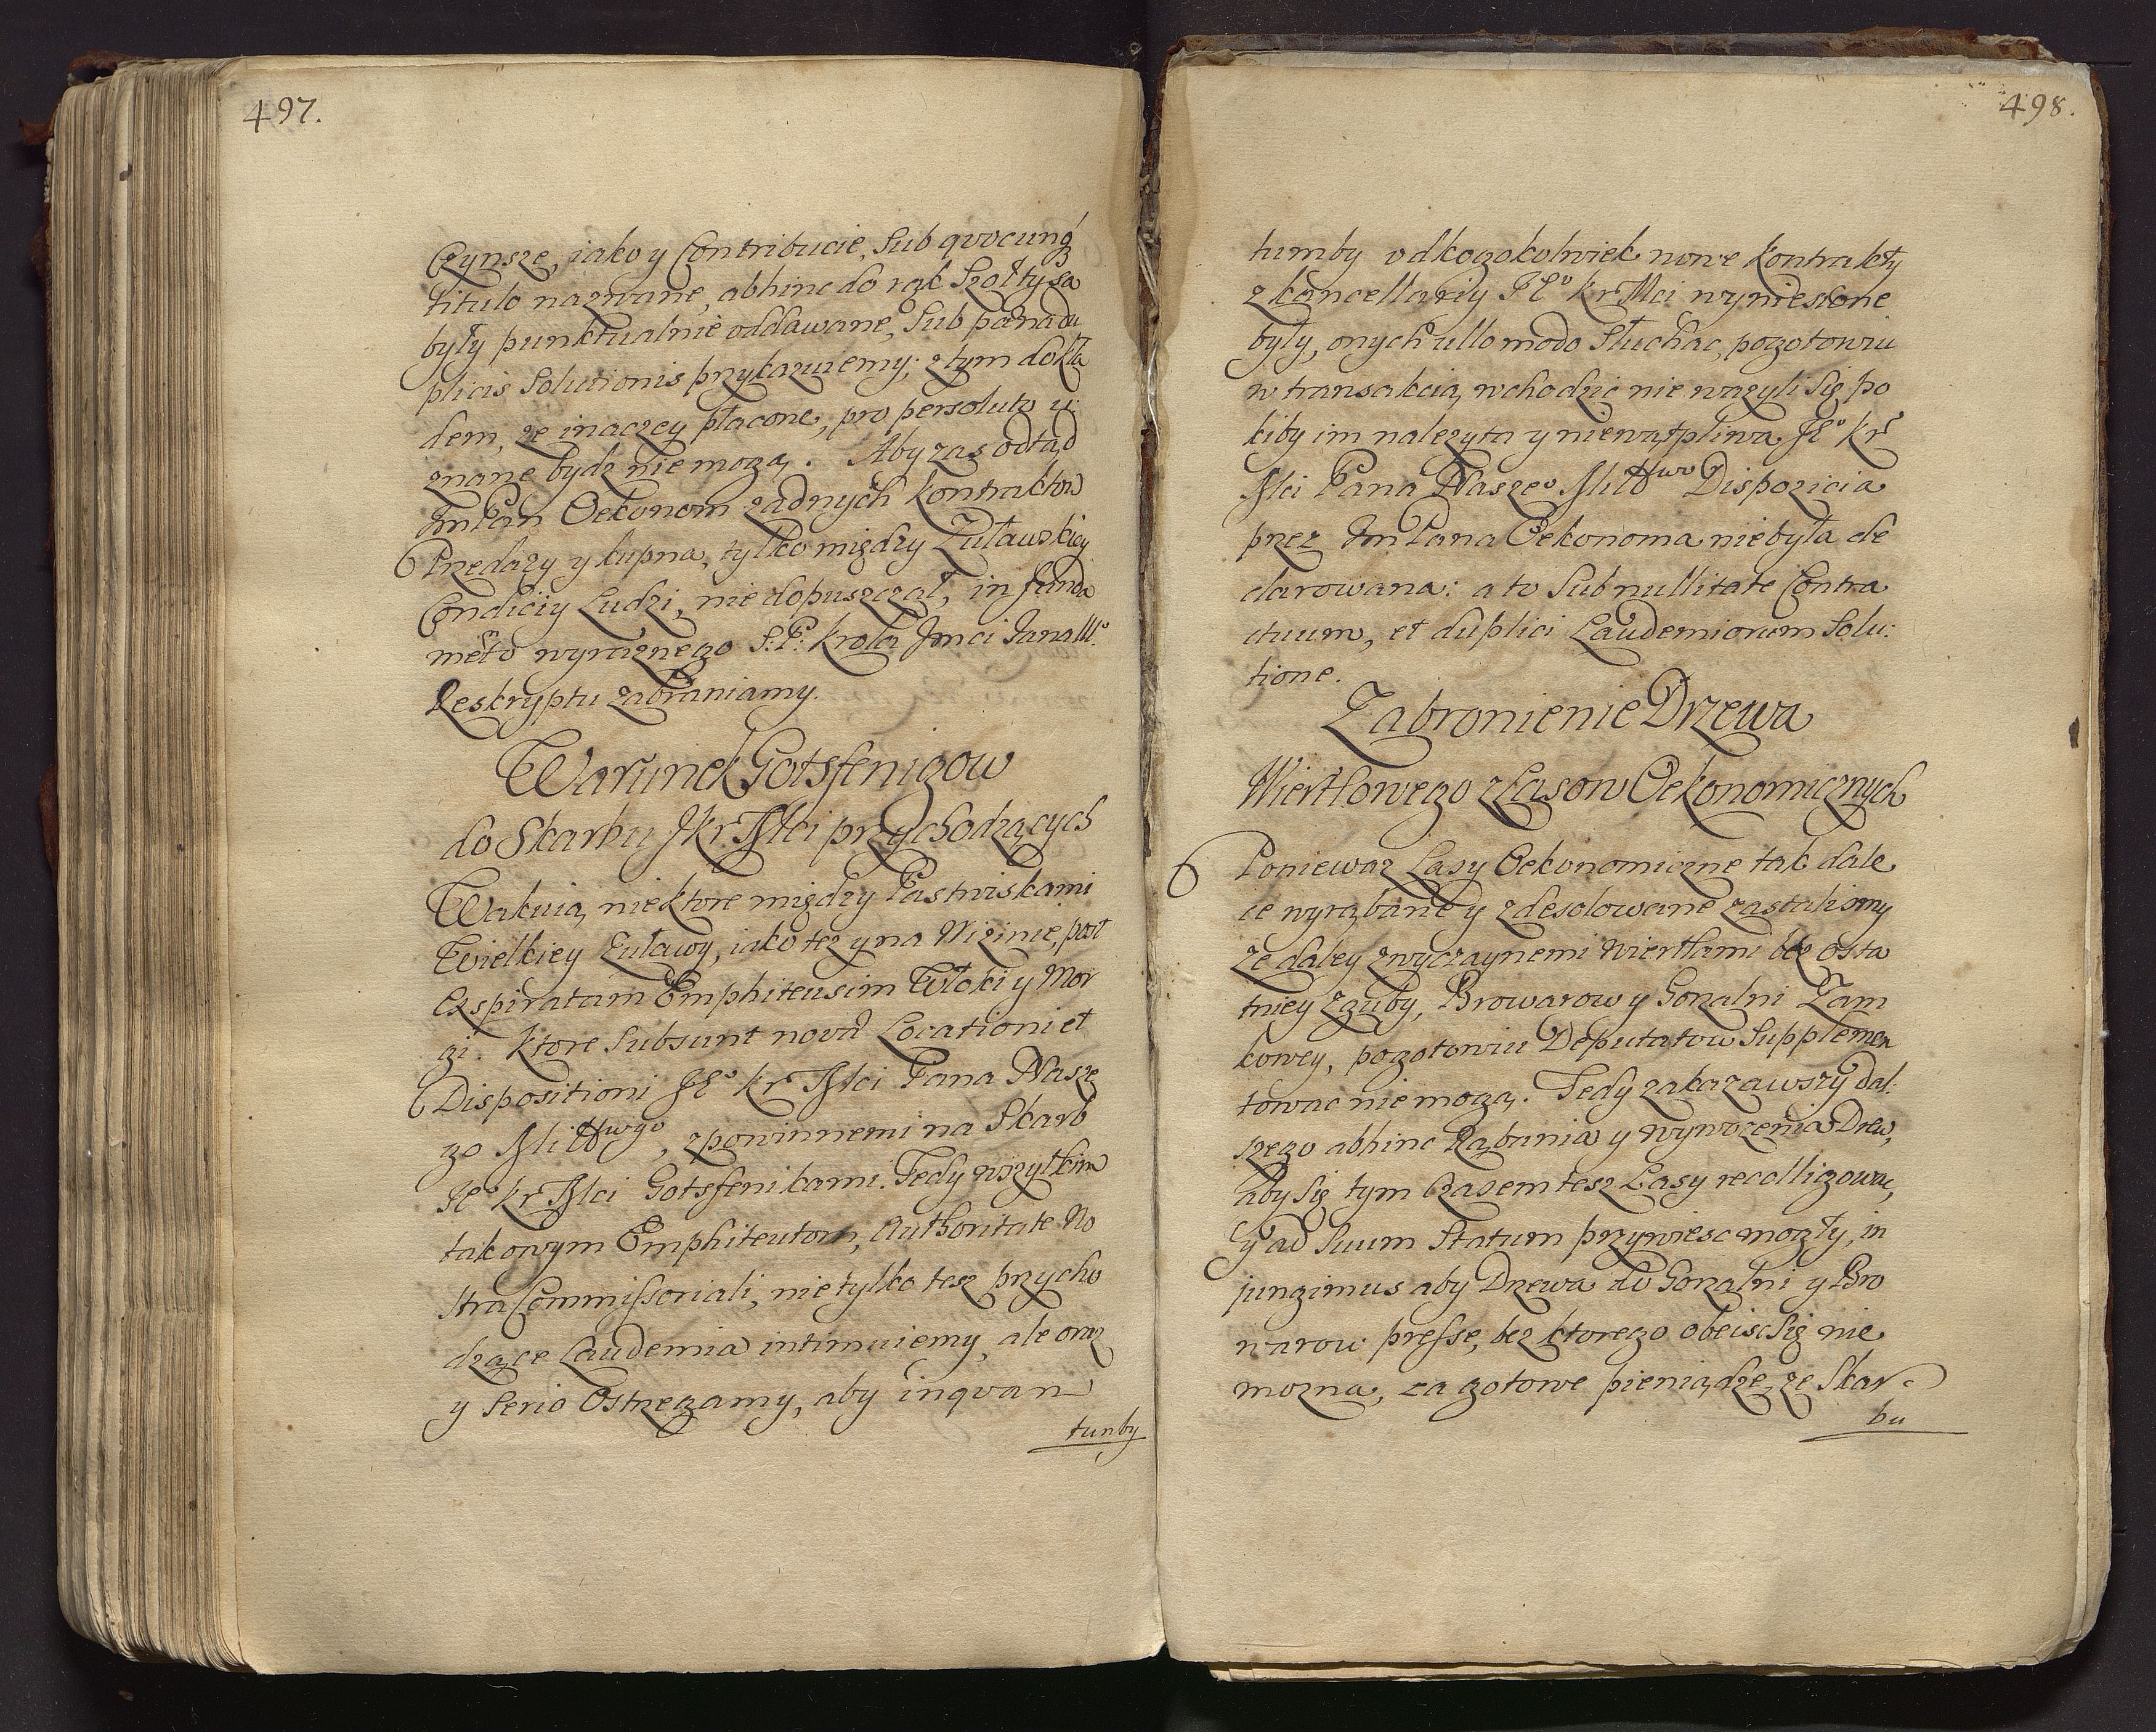 497.
Czynsze, iako y Contribucie, Sub qvocunq́
titulo nazwane, abhinc do rąk Szołtysa
były punktualnie oddawane, Sub pœna du
plicis Solutionis przykazuiemy; z tym dokła
dem, ze inaczey płacone, pro persoluto u:
znane bydz nie mogą. Aby zas odtąd
ImPan Oekonom zadnych Kontraktow
Przedazy y kupna, tylko między Zuławskiey
Condiciy Ludzi, nie dopuszczał, in funda
meto wyraznego S.P. Krola Jmci Jana III.º
Reskryptu zabraniamy.
Warunek Gotsfenigow
do Skarbu J Kr. Mci przychodzących
Wakuią niektore między Pastwiskami
Wielkiey Zuławy, iako tez y na Nizinie, post
Exspiratam Emphiteusim Włoki y Mor
gi. Ktore Subsunt novæ Locationi et
Dispositioni JEº Kr Mci Pana Nasze
go Miłłwgo, z powinnemi na Skarb
JEº Kr Mci Gotsfenikami. Tedy wszytkim
takowym Emphiteutom, Authoritate No
stra Commissoriali, nie tylko tesz przycho
dzące Laudemia intimuiemy, ale oraz
y Serio Ostrzegamy, aby inqvan
tumby
498.
tumby od kogokolwiek nowe Kontrakty
z Kancellariy JEº Kr Mci wyniesione
były, onych ullo modo Słuchac, pogotowiu
w transakcią wchodzic nie wazyli się, po
kiby im nalezyta y niewątpliwa JEº Kr
Mci Pana Naszeº Miłłwº Dispozicia
przez ImPana Oekonoma nie była de
clarowana: a to Sub nullitate Contra
ctuum, et duplici Laudemiorum Solu:
tione.
Zabronienie Drzewa
Wiertlowego z Lasow Oekonomicznych
Poniewaz Lasy Oekonomiczne tak dale
ie wyrąbane y zdesolowane zastalismy
ze daley zwyczaynemi Wiertlami bez osta
tniey zguby, Browarow y Gorzalni Zam
kowey, pogotowiu Deputatow Supplemen
towac nie mogą. Tedy zakazawszy dal:
szego abhinc Rąbania y wywozenia Drew,
aby się tym Czasem tesz Lasy recolligowac,
y ad Suum Statum przywiesc mogły, in
jungimus aby Drzewa do Gorzalni y Bro
warow presse, bez ktorego obeisc Się nie
mozna, za gotowe pieniądze, ze Skar-
bu